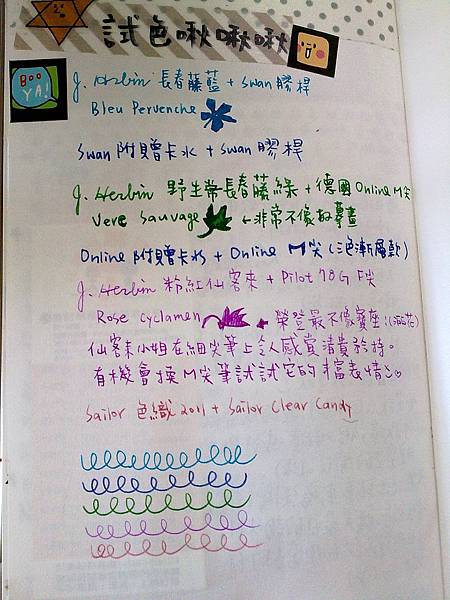 試色啾啾啾
BOO YA!
J. Herbin 長春藤藍 + Swan 膠桿
Bleu Pervenche
Swan 附贈卡水 + Swan 膠桿
J. Herbin 野生常長春藤綠 + 德國 Online M尖
Vere Sauvage ←非常不像的摹畫
Online 附贈卡水 + Online M尖 (三色漸層款)
J. Herbin 粉紅仙客來 + Pilot 78G F尖
Rose Cyclamen ← 榮登最不像寶座:(
仙客來小姐在細尖筆上令人感覺清貴矜持。
有機會換M尖筆試試它的豐富表情
Sailor 色織 2011 + Sailor Clear Candy